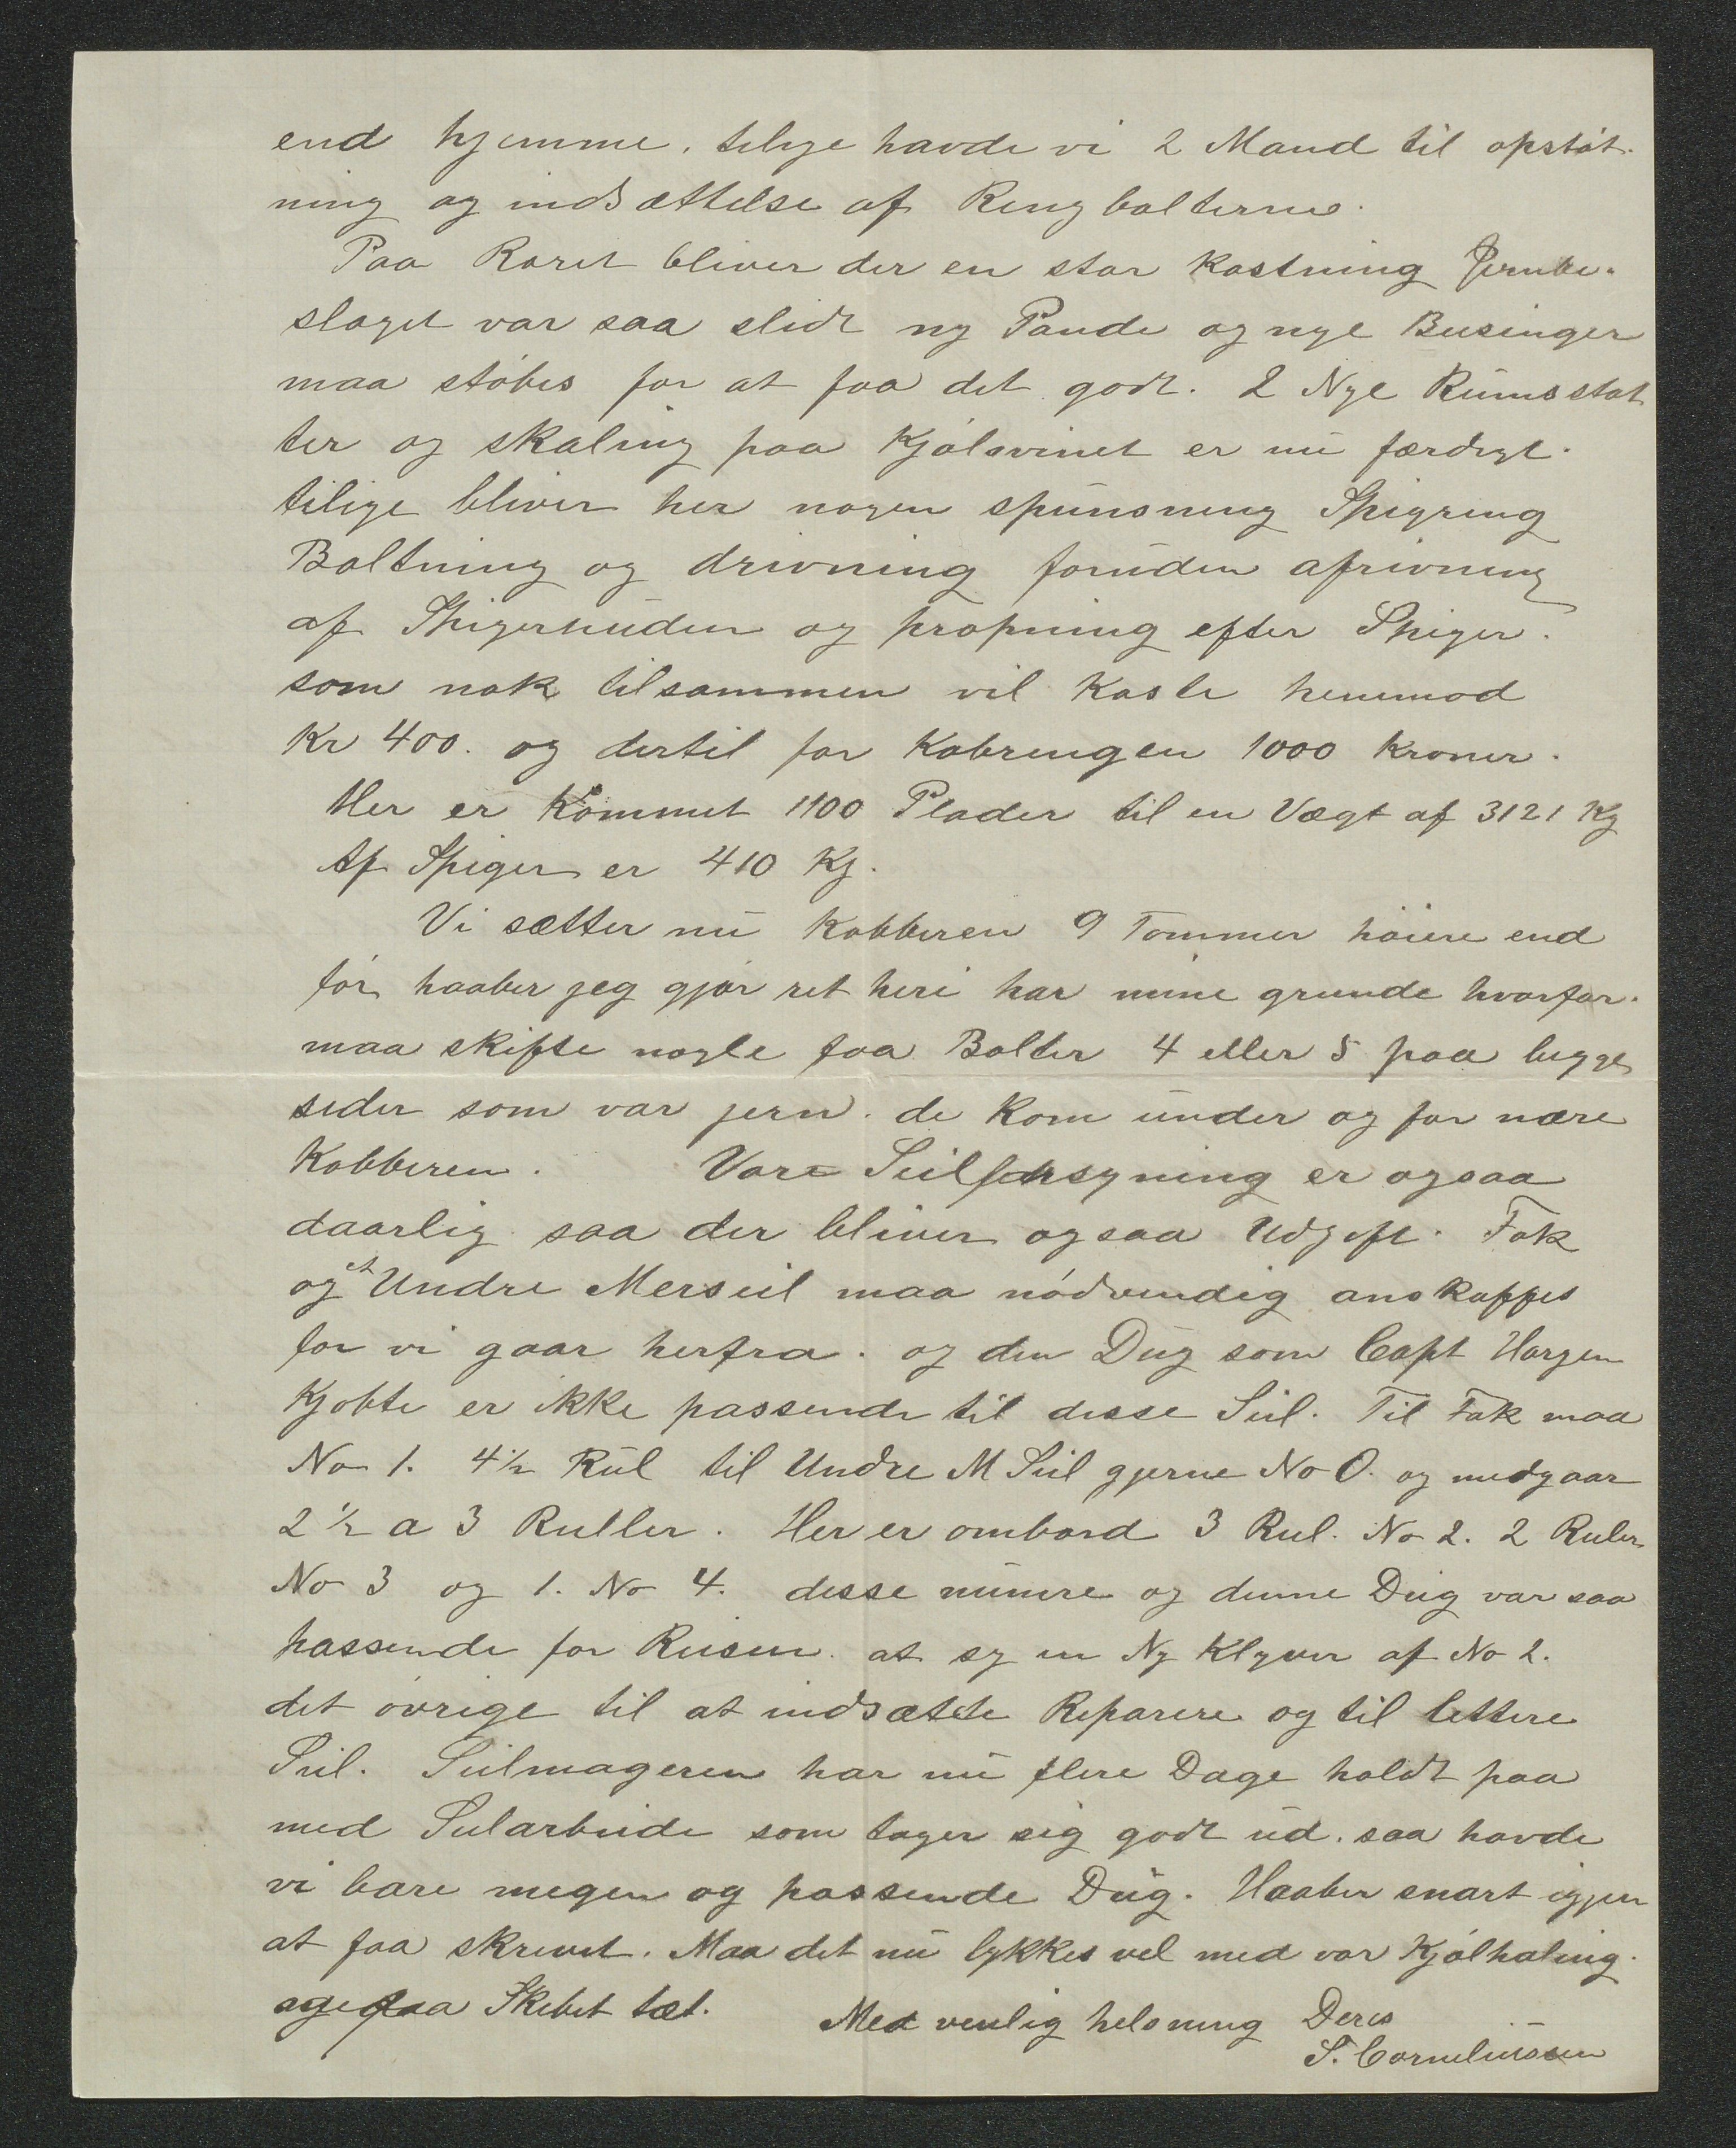 end hjemme. tilige havde vi 2 Mand til opstøt-
ning og indsættelse af Ringbolterne.
Paa Roret bliver der en stor kostning Jernbe-
slaget var saa slidt ny Pande og nye Businger
maa støbes for at faa det godt. 2 Nye Rumsstøt
ter og skaling paa Kjølsvinet er nu færdigt.
tilige bliver her nogen spunsning Spigring
Boltning og drivning foruden afrivning
af Spigerhuden og propning efter Spiger.
som nok tilsammen vil koste henimod
Kr 400. og dertil for Kobringen 1000 Kroner.
Her er Kommet 1100 Plader til en Vægt af 3121 Kg
Af Spiger er 410 Kg.
Vi sætter nu Kobberen 9 Tommer høiere end
før haaber jeg gjør ret heri har mine grunde hvorfor.
maa skifte nogle faa Bolter 4 eller 5 paa begge
sider som var jern. de Kom under og for nære
Kobberen. Vore Seilforsyning er ogsaa
daarlig saa der bliver ogsaa Udgift. Fok
og et Undre Merseil maa nødvendig anskaffes
før vi gaar herfra. og den Dug som Capt Horgen
Kjøbte er ikke passende til disse Seil. Til Fok maa
No 1. 4½ Rul til Undre M Seil gjerne No 0. og medgaar
2½ a 3 Ruller. Her er ombord 3 Rul. No 2. 2 Ruler
No 3 og 1. No 4. disse numre og denne Dug var saa
passende for Reisen at sy en Ny Klyver af No 2.
det øvrige til at indsætte Reparere og til lettere
Seil. Seilmageren har nu flere Dage holdt paa
med Seilarbeide som tager sig godt ud. saa havde
vi bare megen og passende Dug. Haaber snart igjen
at faa skrevet. Maa det nu lykkes vel med vor Kjølhaling.
og faa Skibet tæt. Med venlig helsning Deres
S. Corneliussen